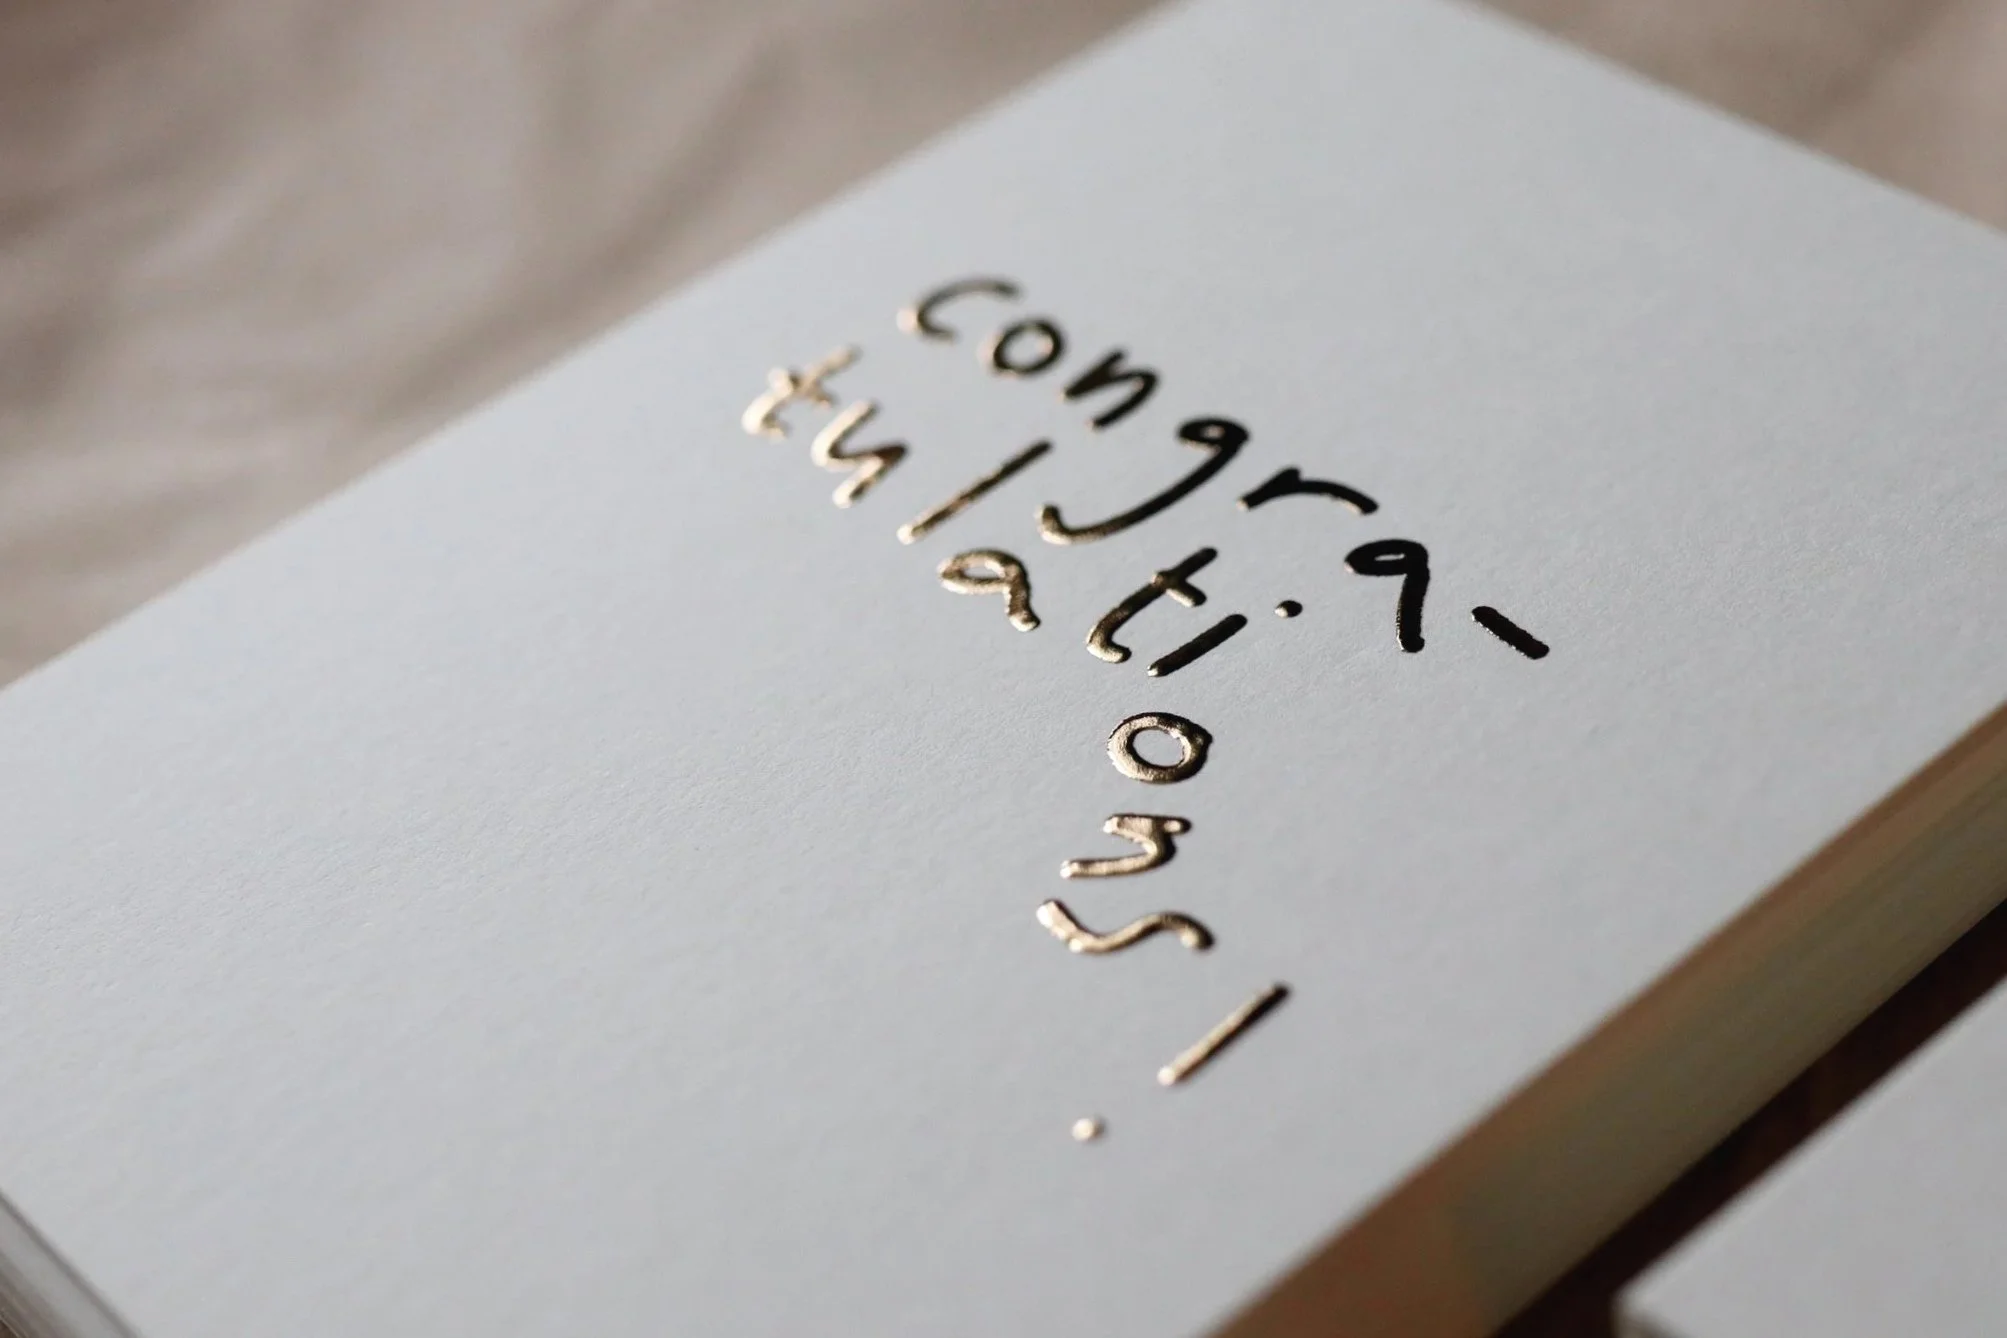 congra-
tulations!